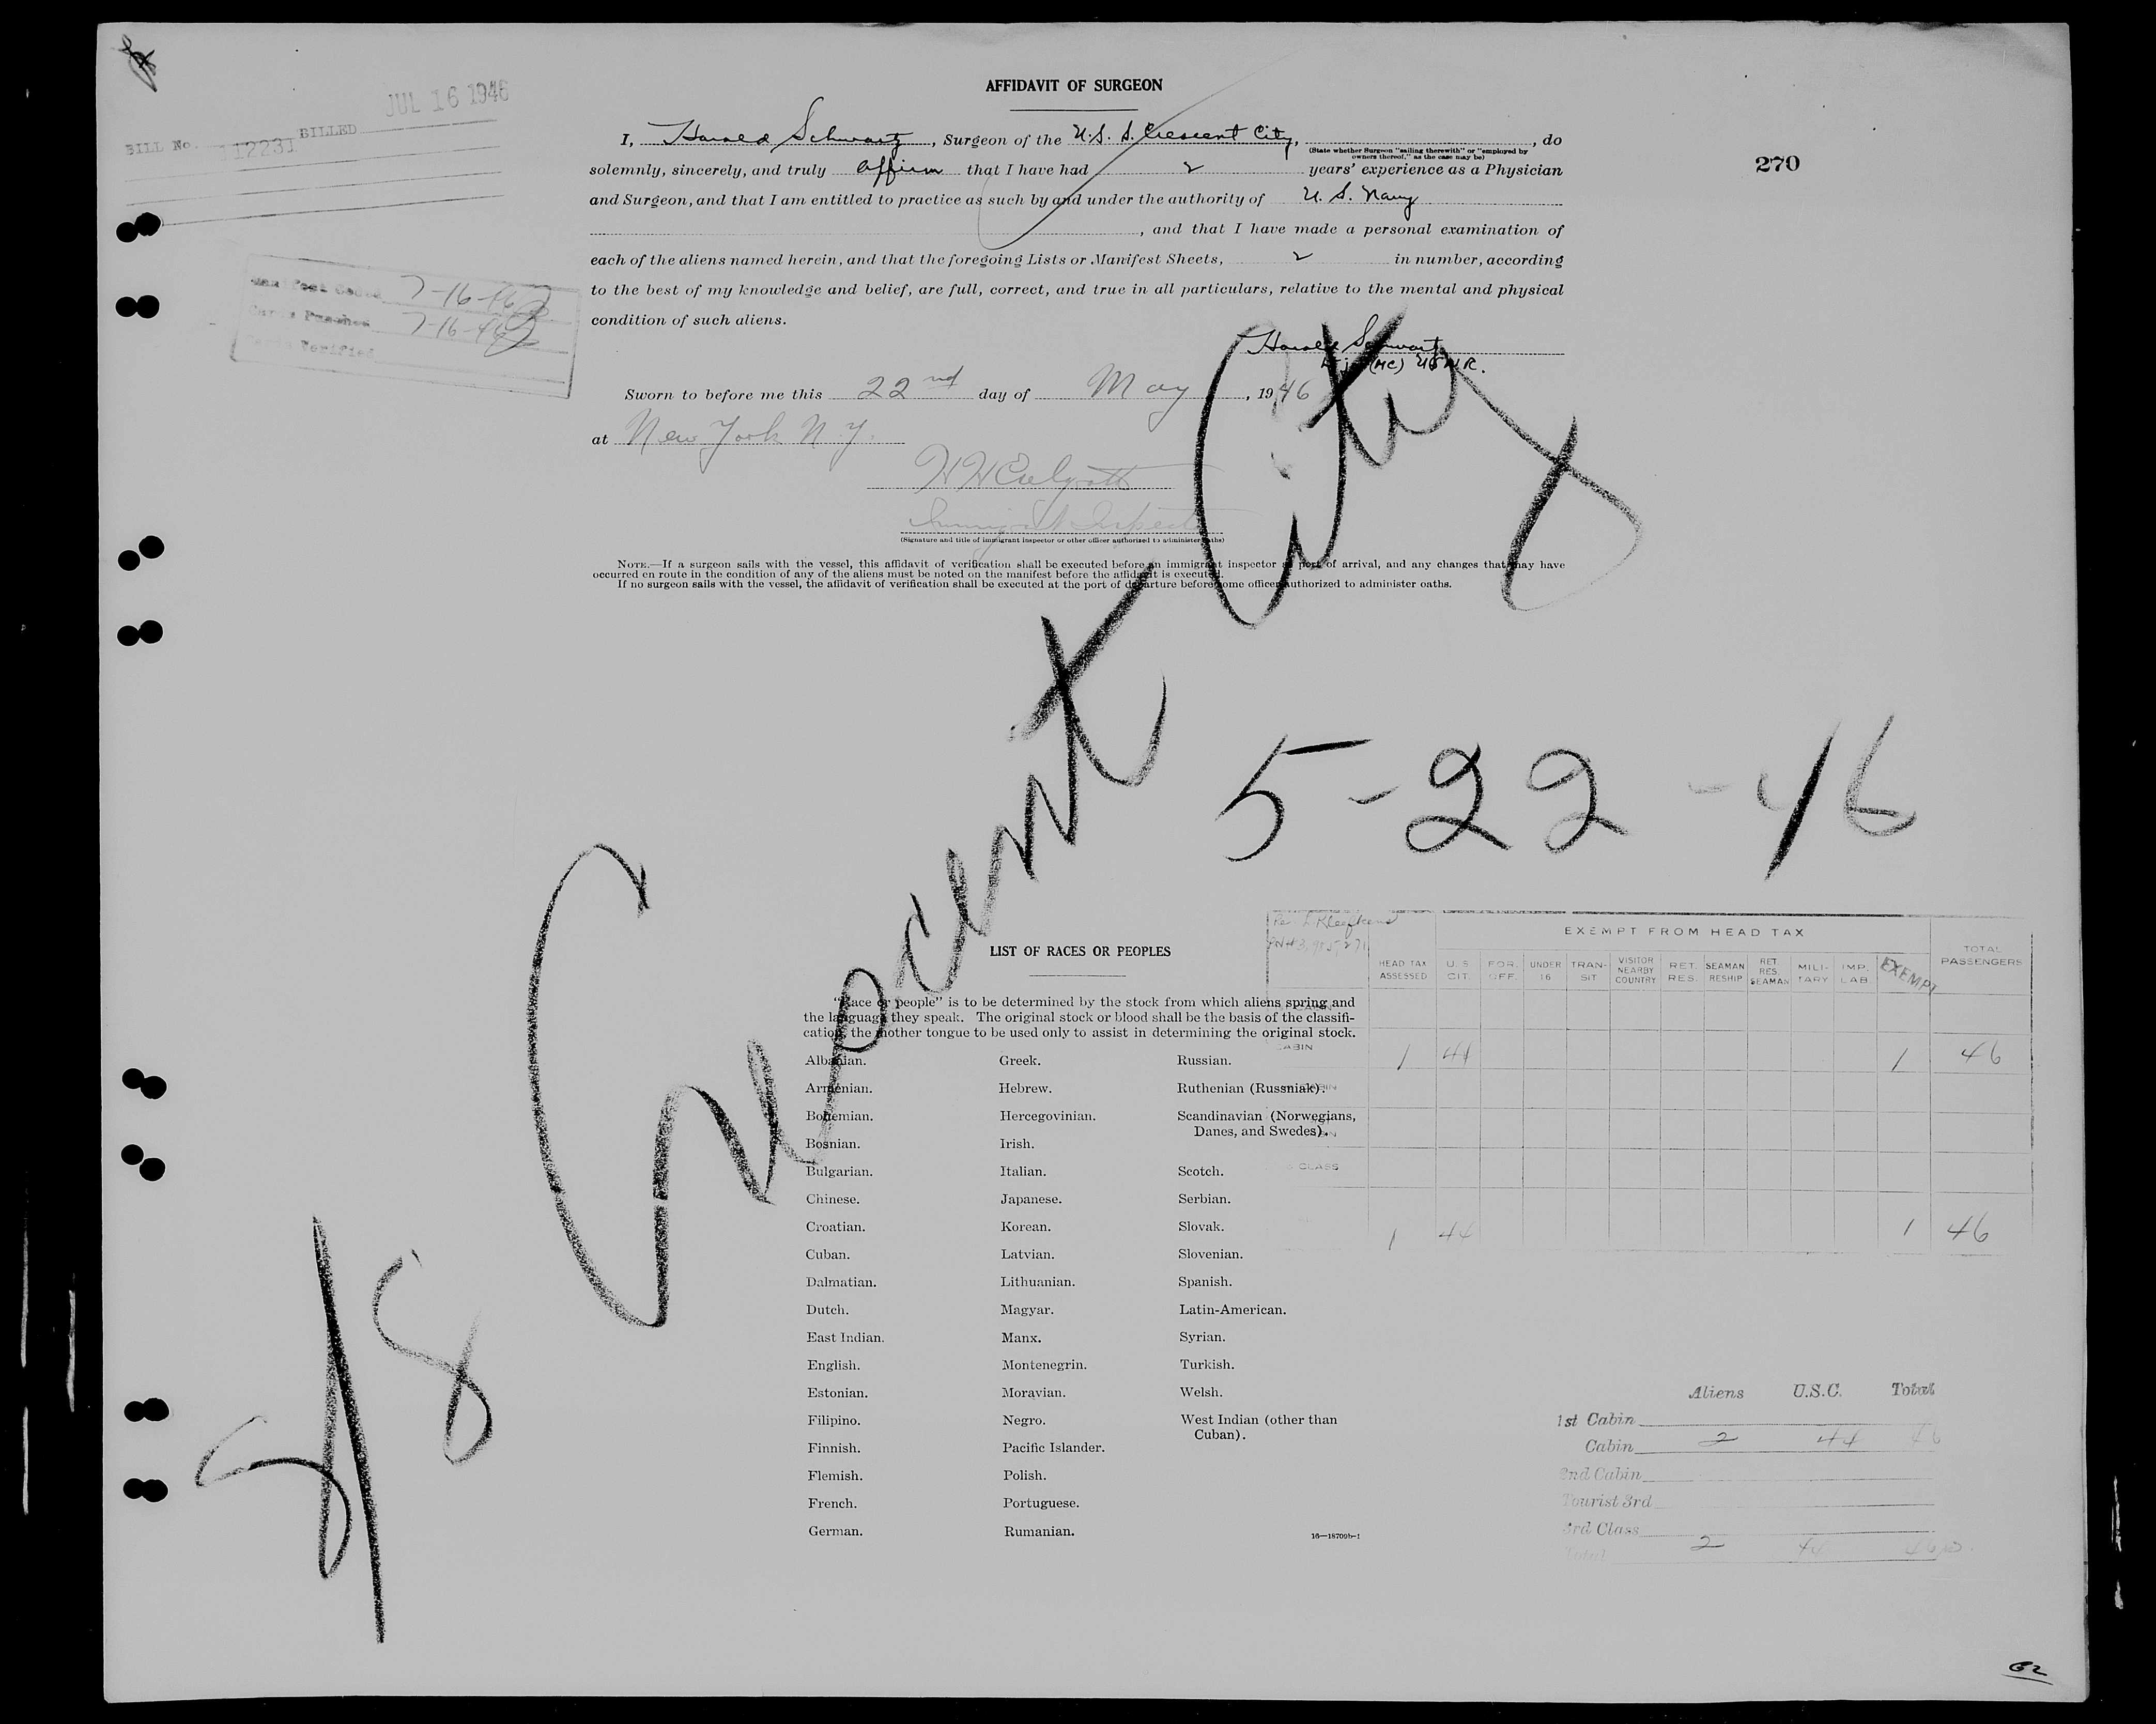 JUL 16 1946
BILL No. 112231 BILLED
AFFIDAVIT OF SURGEON
270
I, Harold Schwartz, Surgeon of the U.S.S. Crescent City, , do
(State whether Surgeon "sailing therewith" or "employed by
owners thereof," as the case may be)
solemnly, sincerely, and truly affirm that I have had 2 years' experience as a Physician
and Surgeon, and that I am entitled to practice as such by and under the authority of U. S. Navy
, and that I have made a personal examination of
each of the aliens named herein, and that the foregoing Lists or Manifest Sheets, 2 in number, according
to the best of my knowledge and belief, are full, correct, and true in all particulars, relative to the mental and physical
condition of such aliens.
Manifest 7-16-46
Cards Punched 7-16-46
Cards Verified
Harold Schwartz
Lt jg (MC) USNR.
Sworn to before me this 22nd day of May, 1946
at New York N.Y.
Immigrant Inspector
(Signature and title of immigrant inspector or other officer authorized to administer oaths)
NOTE.—If a surgeon sails with the vessel, this affidavit of verification shall be executed before an immigrant inspector at port of arrival, and any changes that may have
occurred en route in the condition of any of the aliens must be noted on the manifest before the affidavit is executed.
If no surgeon sails with the vessel, the affidavit of verification shall be executed at the port of departure before some officer authorized to administer oaths.
S/S Crescent City
5-22-46
LIST OF RACES OR PEOPLES
"Race or people" is to be determined by the stock from which aliens spring and
the language they speak. The original stock or blood shall be the basis of the classifi-
cation, the mother tongue to be used only to assist in determining the original stock.
Albanian. Greek. Russian.
Armenian. Hebrew. Ruthenian (Russniak).
Bohemian. Hercegovinian. Scandinavian (Norwegians,
Danes, and Swedes).
Bosnian. Irish.
Bulgarian. Italian. Scotch.
Chinese. Japanese. Serbian.
Croatian. Korean. Slovak.
Cuban. Latvian. Slovenian.
Dalmatian. Lithuanian. Spanish.
Dutch. Magyar. Latin-American.
East Indian. Manx. Syrian.
English. Montenegrin. Turkish.
Estonian. Moravian. Welsh.
Filipino. Negro. West Indian (other than
Cuban).
Finnish. Pacific Islander.
Flemish. Polish.
French. Portuguese.
German. Rumanian.
16—18709b-1
EXEMPT FROM HEAD TAX
HEAD TAX ASSESSED U.S. CIT. FOR. OFF. UNDER 16 TRAN-SIT VISITOR NEARBY COUNTRY RET. RES. SEAMAN RESHIP RET. RES. SEAMAN MILI-TARY IMP. LAB. EXEMPT TOTAL PASSENGERS
CABIN 1 44 1 46
CLASS
1 44 1 46
Aliens U.S.C. Total
1st Cabin
Cabin 2 44 46
2nd Cabin
Tourist 3rd
3rd Class
Total 2 44 46
62